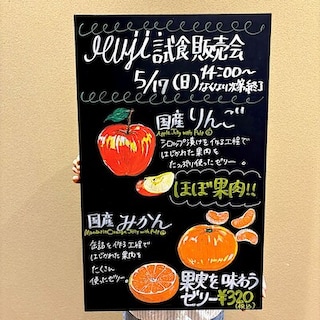 muji 試食販売会
5/17(日) 14:00〜
なくなり次第終了
国産りんご
Apple Jelly with Pulp
シロップ漬けを作る工程で
はじかれた果肉を
たっぷり使ったゼリー。
ほぼ果肉!!
国産みかん
Mandarin Orange Jelly with Pulp
缶詰を作る工程で
はじかれた果肉を
たくさん
使ったゼリー。
果実を味わう
ゼリー ¥320
(税込)